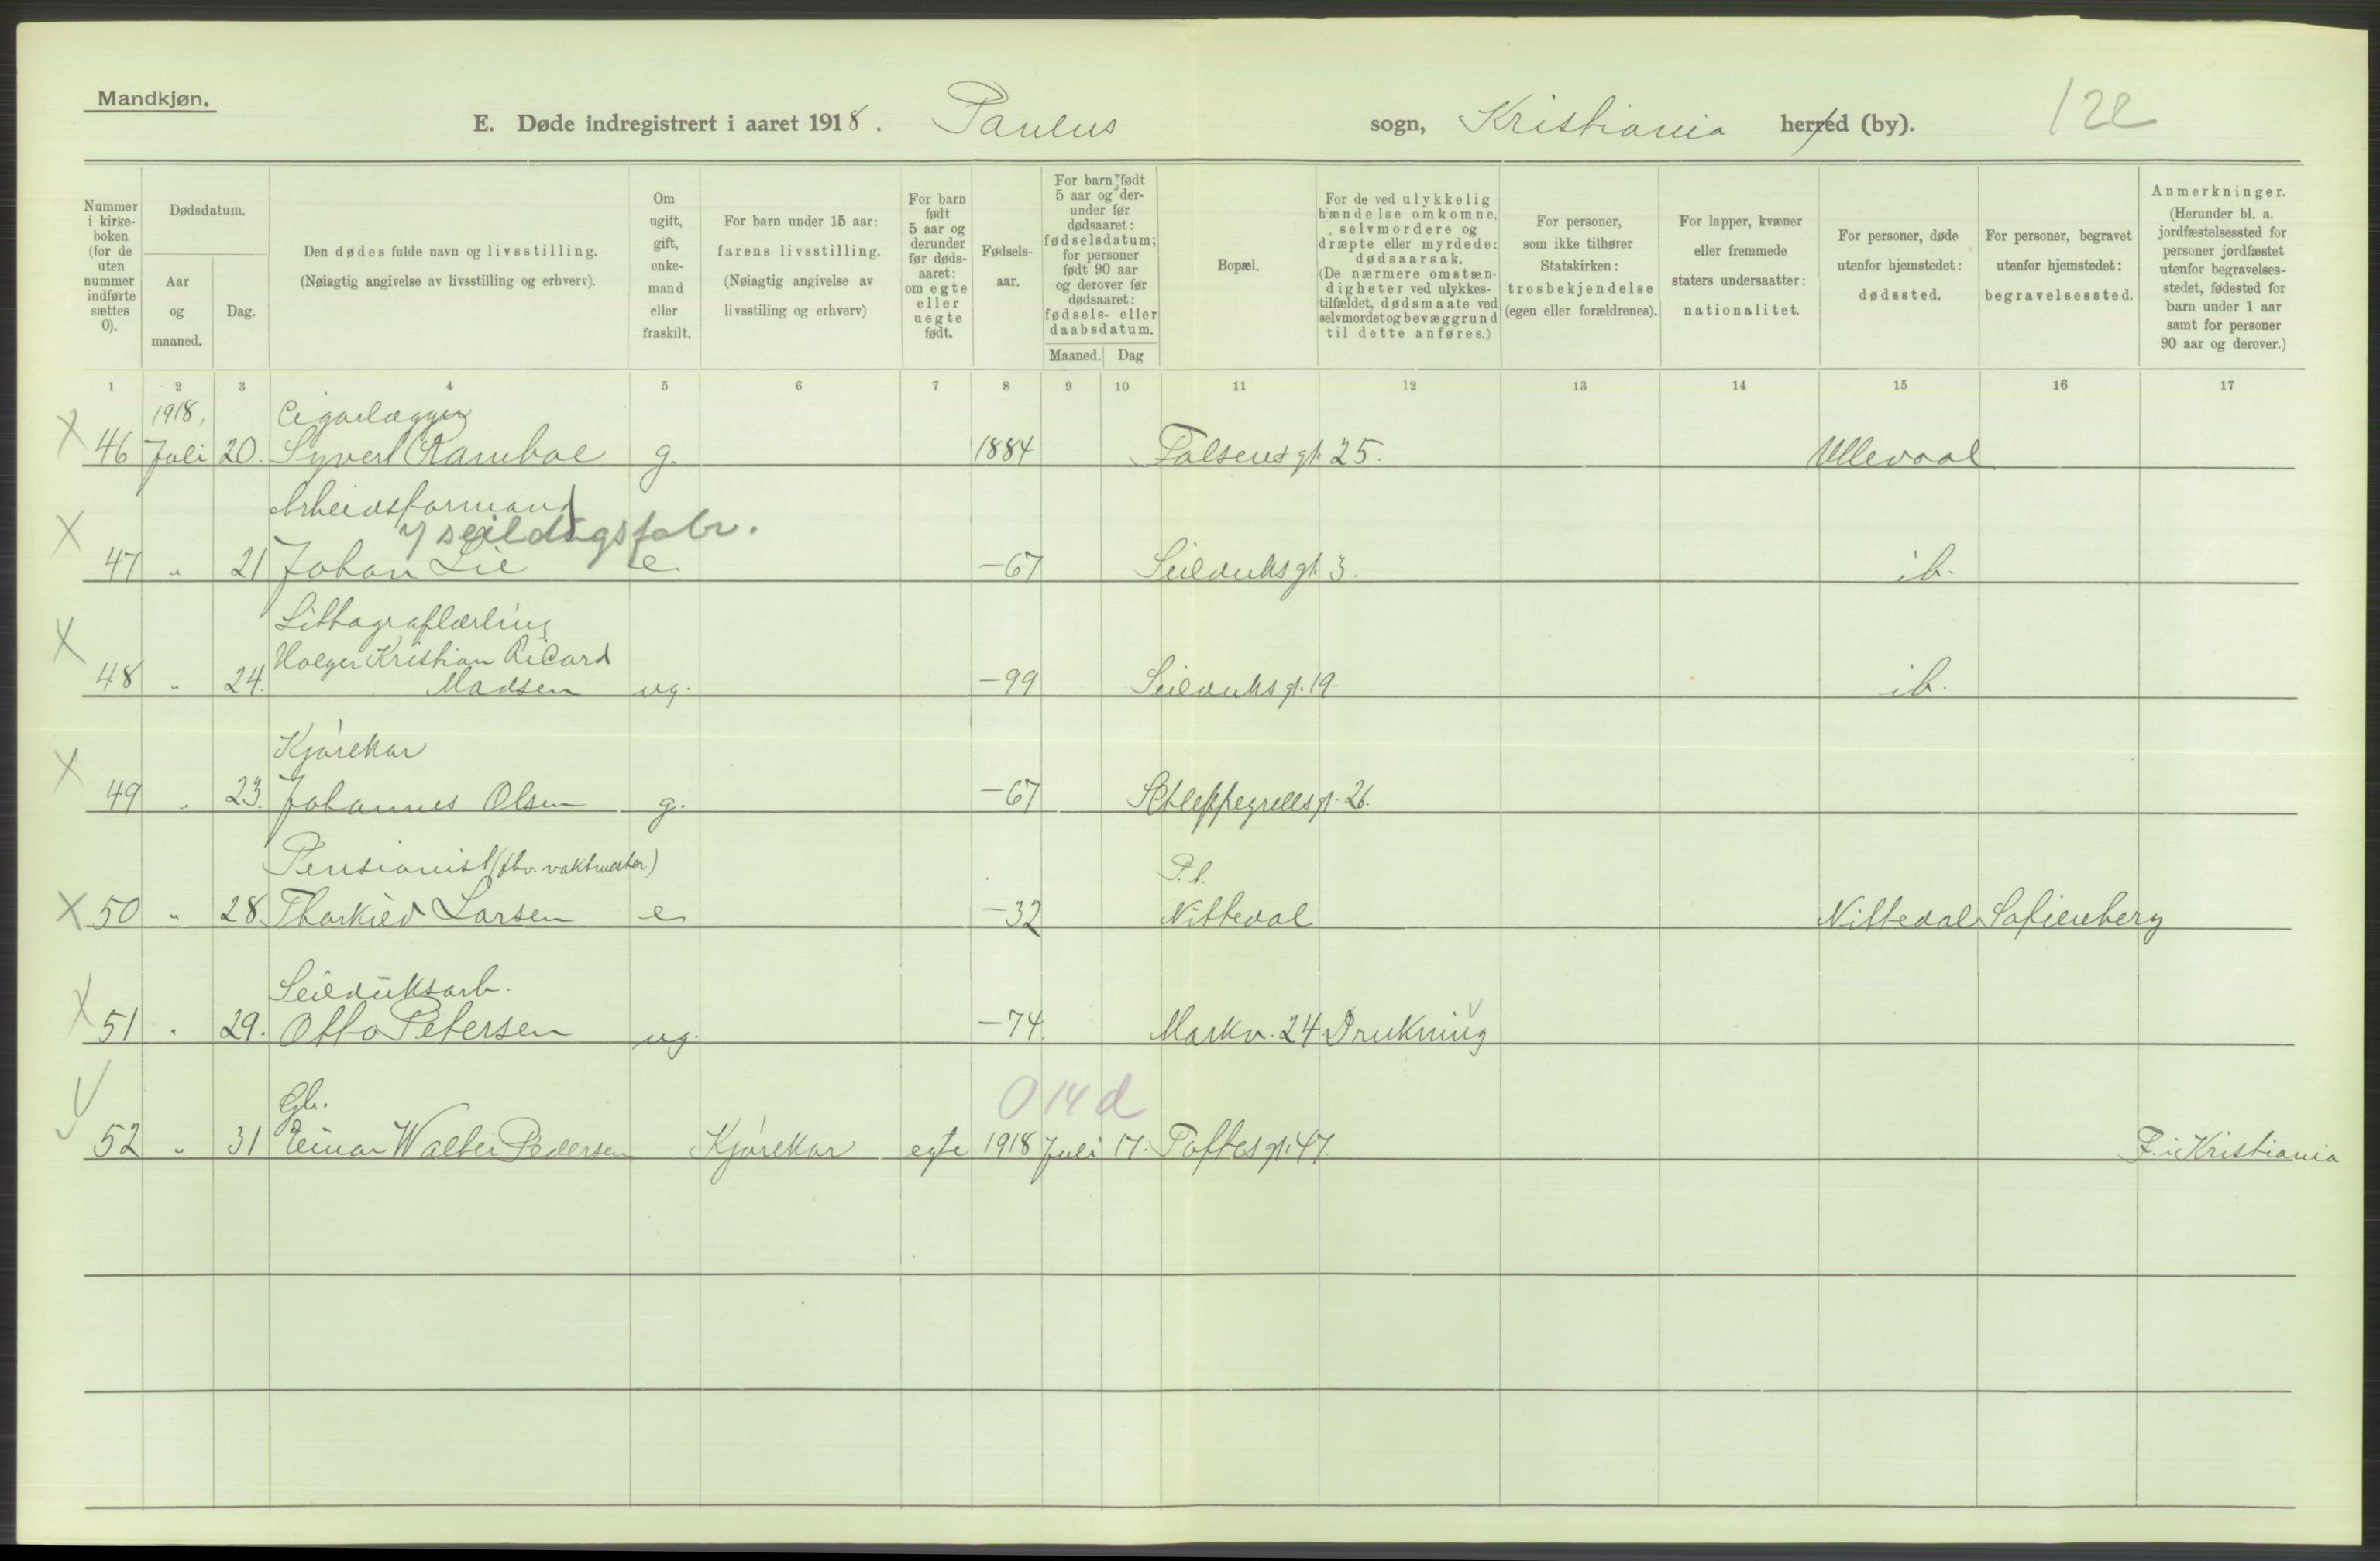 Mandkjøn.
E. Døde indregistrert i aaret 1918. Paulus sogn, Kristiania herred (by). 122
Nummer i kirkeboken (for de uten nummer indførte sættes 0).
Dødsdatum.
Aar og maaned.
Dag.
Den dødes fulde navn og livsstilling.
(Nøiagtig angivelse av livsstilling og erhverv).
Om ugift, gift, enkemand eller fraskilt.
For barn under 15 aar: farens livsstilling.
(Nøiagtig angivelse av livsstiling og erhverv)
For barn født 5 aar og derunder før dødsaaret: om egte eller uegte født.
Fødselsaar.
For barn født 5 aar og derunder før dødsaaret: fødselsdatum; for personer født 90 aar og derover før dødsaaret: fødsels- eller daabsdatum.
Maaned. Dag
Bopæl.
For de ved ulykkelig hændelse omkomne, selvmordere og dræpte eller myrdede: dødsaarsak.
(De nærmere omstændigheter ved ulykkestilfældet, dødsmaate ved selvmordet og bevæggrund til dette anføres.)
For personer, som ikke tilhører Statskirken: trosbekjendelse (egen eller forældrenes).
For lapper, kvæner eller fremmede staters undersaatter: nationalitet.
For personer, døde utenfor hjemstedet: dødssted.
For personer, begravet utenfor hjemstedet: begravelsessted.
Anmerkninger.
(Herunder bl. a. jordfæstelsessted for personer jordfæstet utenfor begravelsesstedet, fødested for barn under 1 aar samt for personer 90 aar og derover.)
1 2 3 4 5 6 7 8 9 10 11 12 13 14 15 16 17
1918, Cigarlægger
X 46 Juli 20. Syvert Rambøl g. 1884 Falsensgt. 25. Ullevaal
Arbeidsformand
v/ seildugsfabr.
X 47 " 21 Johan Lie e. -67 Seilduksgt. 3. ib.
Lithograflærling
Holger Kristian Ricard
X 48 " 24. Madsen ug. -99 Seilduksgt. 19. ib.
Kjørekar
X 49 " 23. Johannes Olsen g. -67 Schleppegrellsgt. 26.
Pensionist (fhv. vaktmester) P. t.
X 50 " 28. Thorkild Larsen e -32 Nittedal Nittedal Sofienberg
Seilduksarb.
X 51 " 29. Otto Petersen ug. -74. Markv. 24 Drukning
Gb. 0 14 d
V 52 " 31 Einar Walter Pedersen Kjørekar egte 1918 Juli 17. Toftesgt. 47. F. i Kristiania